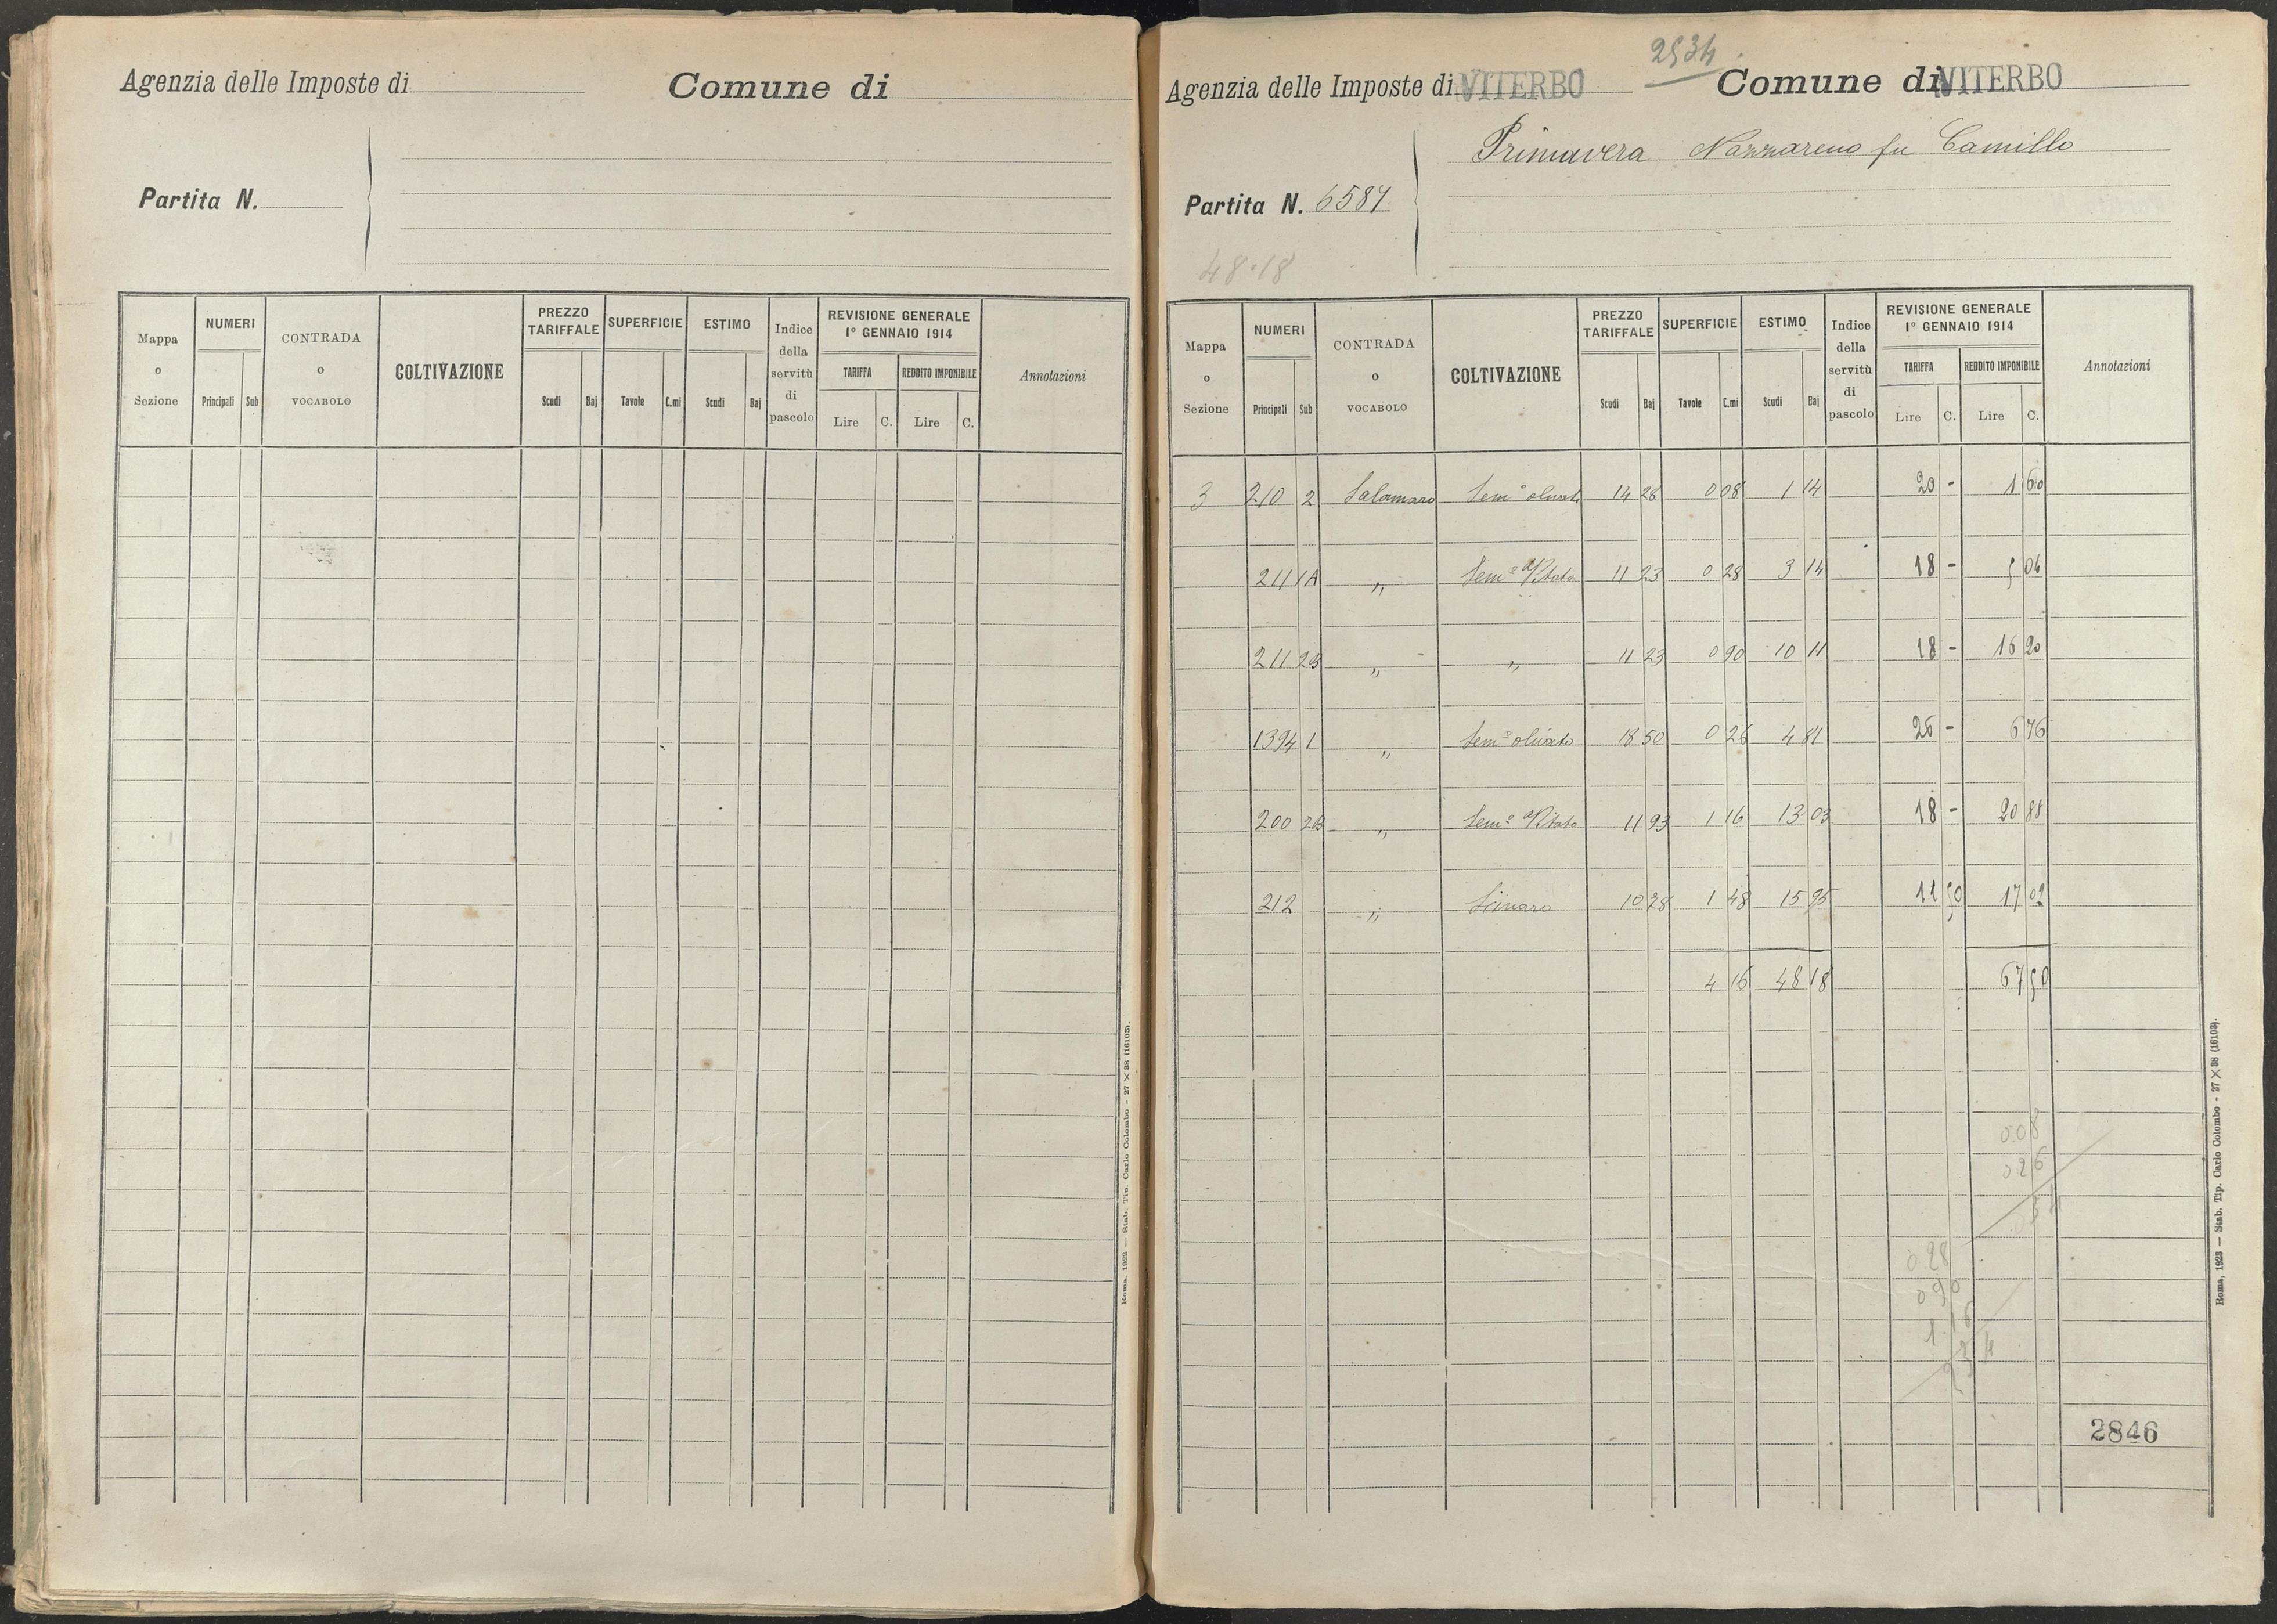 Agenzia delle Imposte di
Comune di
Partita N.
Mappa o Sezione
NUMERI
Principali Sub
CONTRADA o VOCABOLO
COLTIVAZIONE
PREZZO TARIFFALE
Scudi Baj
SUPERFICIE
Tavole C.mi
ESTIMO
Scudi Baj
Indice della servitù di pascolo
REVISIONE GENERALE
1º GENNAIO 1914
TARIFFA
Lire C.
REDDITO IMPONIBILE
Lire C.
Annotazioni
Roma, 1923 — Stab. Tip. Carlo Colombo - 27 × 38 (16103).
2534
Agenzia delle Imposte di VITERBO
Comune di VITERBO
Primavera Nazzareno fu Camillo
Partita N. 6587
48.18
Mappa o Sezione
NUMERI
Principali Sub
CONTRADA o VOCABOLO
COLTIVAZIONE
PREZZO TARIFFALE
Scudi Baj
SUPERFICIE
Tavole C.mi
ESTIMO
Scudi Baj
Indice della servitù di pascolo
REVISIONE GENERALE
1º GENNAIO 1914
TARIFFA
Lire C.
REDDITO IMPONIBILE
Lire C.
Annotazioni
3 210 2 Salamaro Semº olivato 14 28 0 08 1 14 20 - 1 60
211 1A " Semº Vitato 11 23 0 28 3 14 18 - 5 04
211 2B " " 11 23 0 90 10 11 18 - 16 20
1394 1 " Semº olivato 18 50 0 26 4 81 26 - 6 76
200 2B " Semº Vitato 11 93 1 16 13 03 18 - 20 88
212 " 10 28 1 48 15 95 11 50 17 02
4 16 48 18 67 50
0.08
0 26
0 34
0.28
0 90
1.16
2 34
2846
Roma, 1923 — Stab. Tip. Carlo Colombo - 27 × 38 (16103).